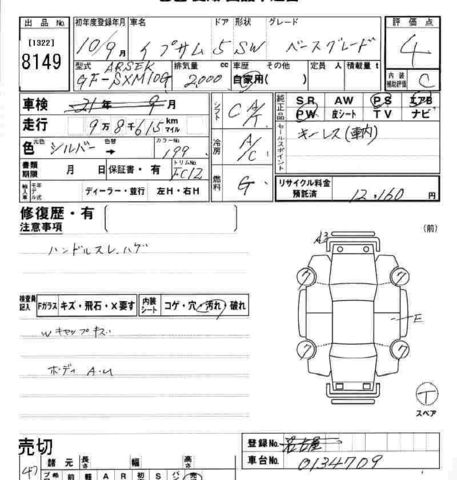 出品No. 初年度登録年月 車名 ドア 形状 グレード 評価点
[1322] 8149 10/9月 イプサム 5 SW ベースグレード 4
型式 排気量 cc 車歴 その他 定員 人 積載量 t 内装補助評価 C
GF-SXM10G 2,000 自家用( )
車検 21年 9月 シフト C A/T 純正品 SR AW PS エアB
PW 皮シート TV ナビ
走行 9万8千615 km マイル セールスポイント キーレス(車内)
色 シルバー 色替 カラーNo. 199 冷房 A/C
書類期限 月 日 保証書・有 トリムNo. FC12
輸入車 モデル 年式 ディーラー・並行 左H・右H 燃料 G リサイクル料金預託済 12,160円
修復歴・有
注意事項
(前)
ハンドルスレ.ハゲ
A3
検査員記入 Fガラス キズ・飛石・X要す 内装シート コゲ・穴・汚れ・破れ
Wキャップキズ
E
ボディ A.U
7 7 7 7
スペア
売切 登録No. 名古屋
諸元 長さ 幅 高さ 車台No. 0134709